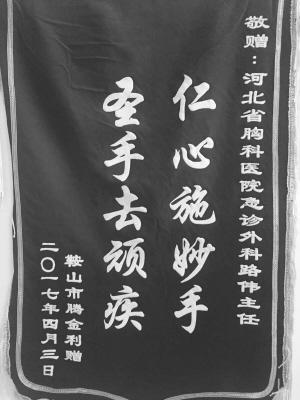 敬赠：河北省胸科医院急诊外科路伟主任
仁心施妙手
圣手去顽疾
鞍山市腾金利赠
二〇一七年四月三日